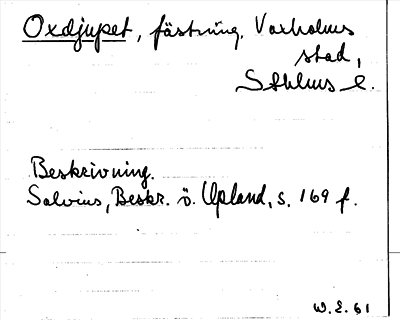 Oxdjupet, fästning, Vaxholms
stad,
Sthlms l.
Beskrivning.
Salvius, Beskr. ö. Upland, s. 169 f.
W.E. 61